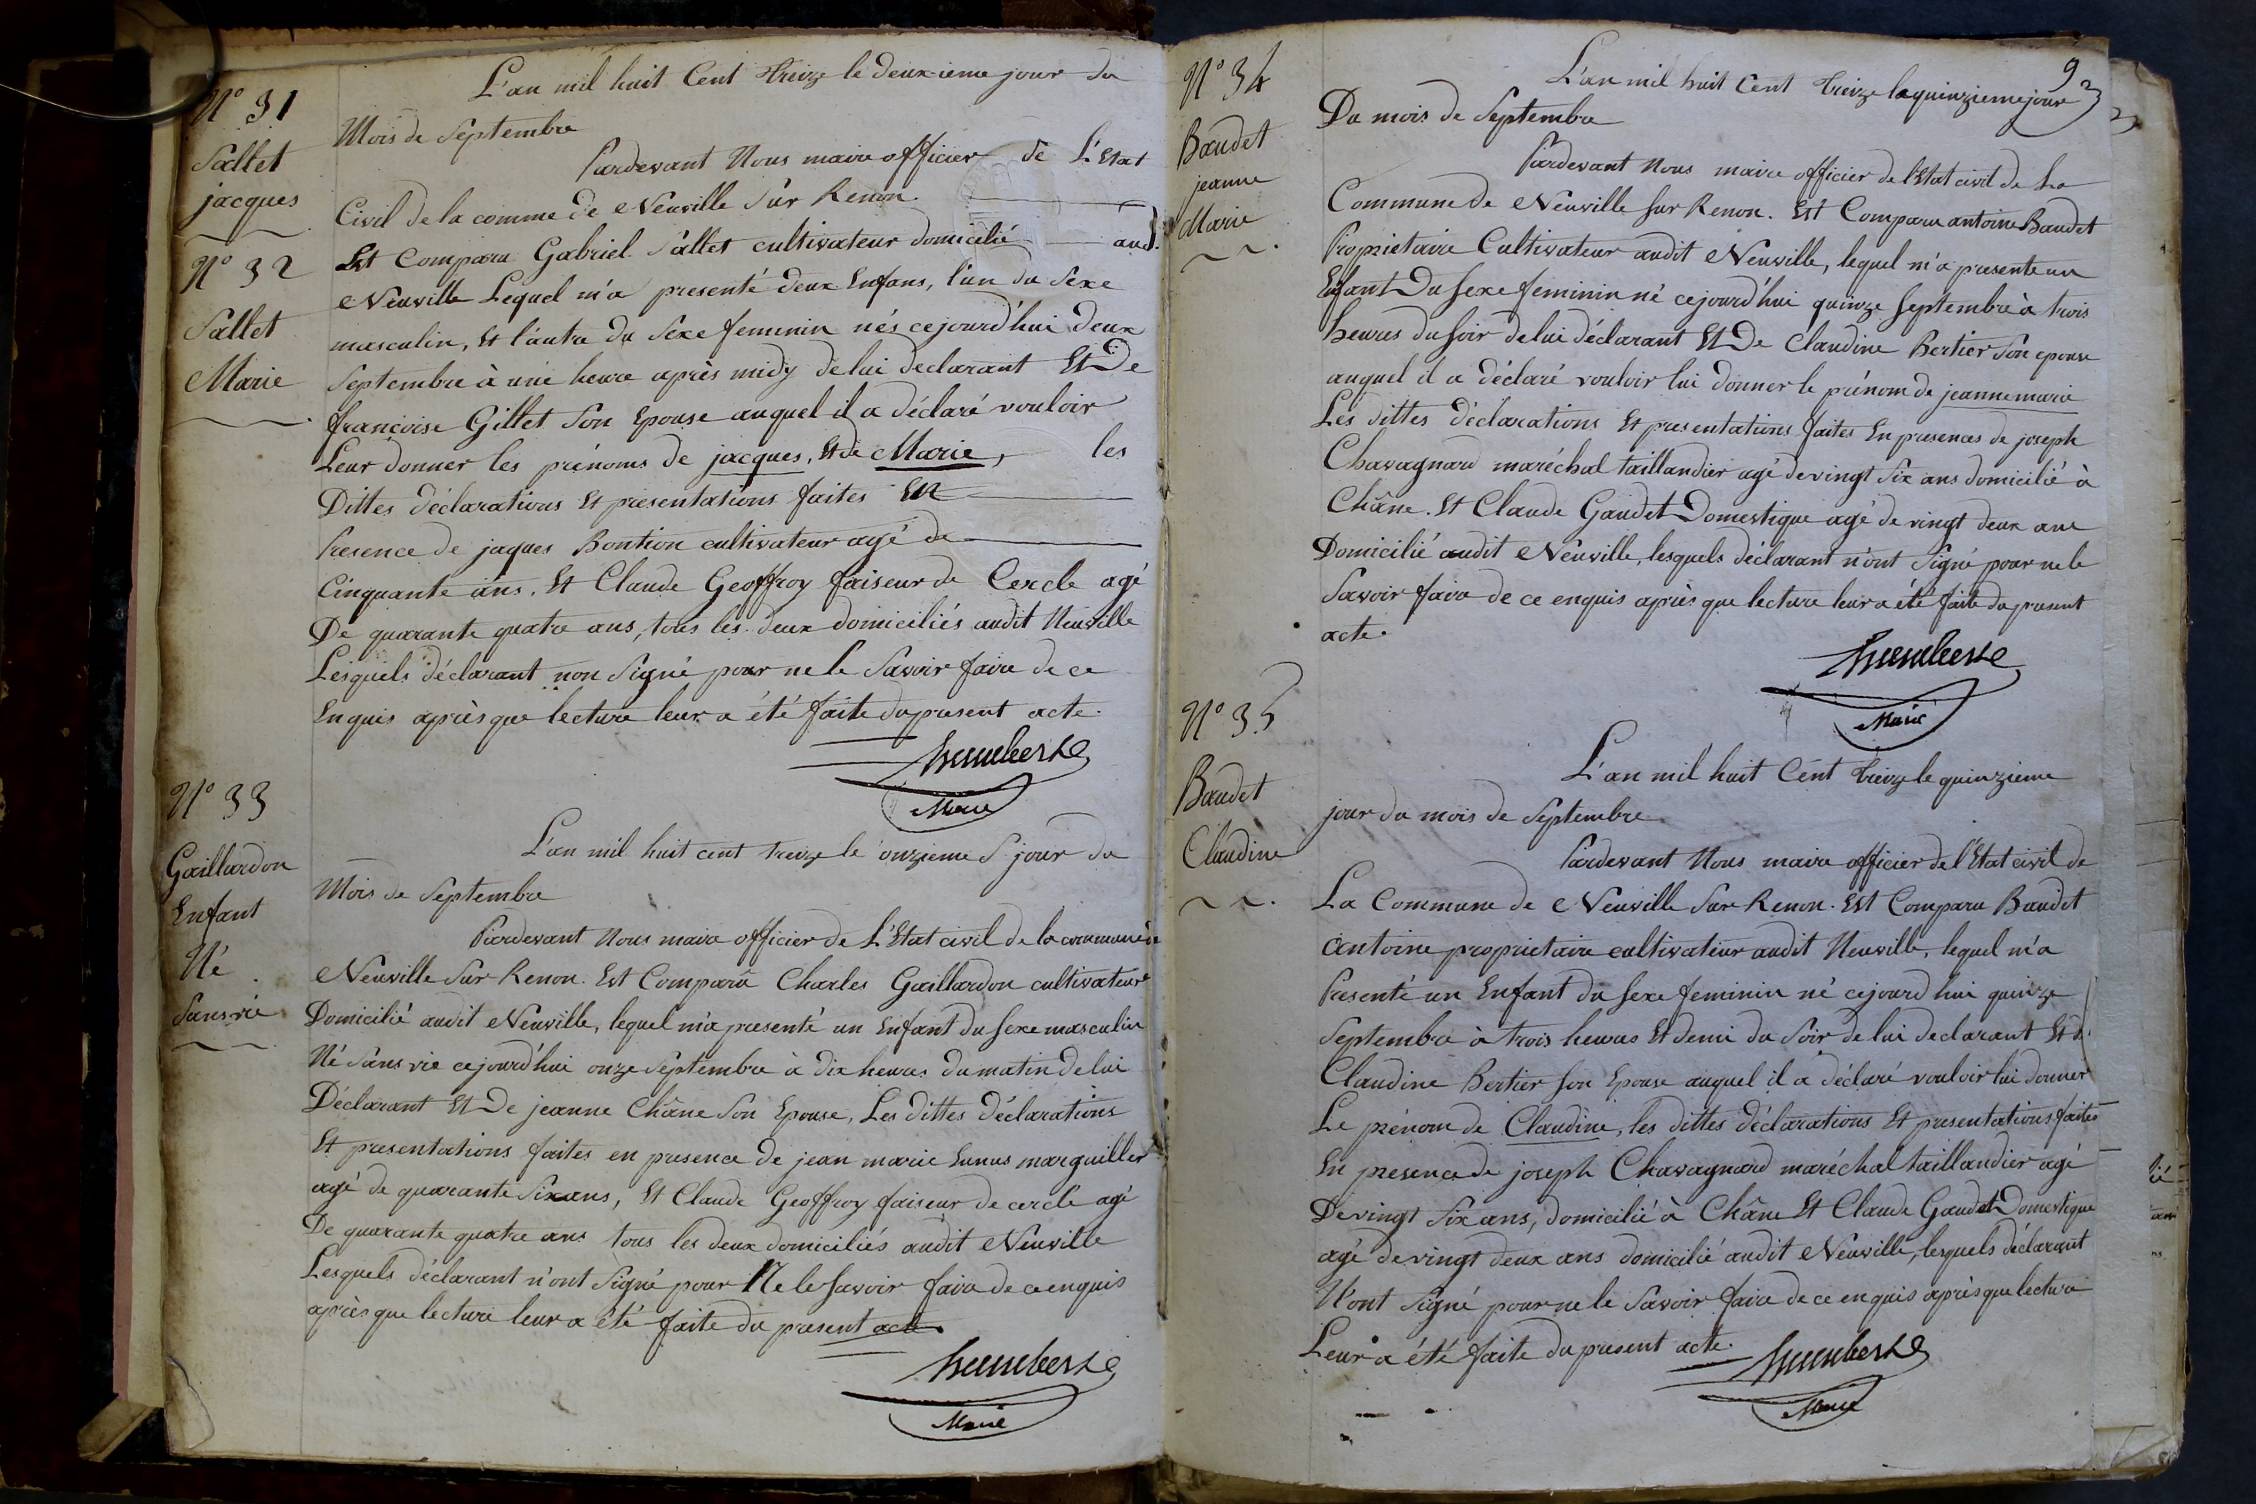 N° 31
Sallet
jacques
N° 32
Sallet
Marie
L'an mil huit Cent treize le deuxieme jour du
Mois de Septembre
Pardevant Nous maire officier de L'Etat
Civil de la comme de Neuville Sur Renon.
Est Comparu Gabriel Sallet cultivateur domicilié aud.
Neuville Lequel m'a presenté deux Enfans, l'un du Sexe
masculin, Et l'autre du Sexe feminin nés cejourd'hui deux
Septembre à une heure après midy de lui declarant Et De
françoise Gillet Son Epouse auquel il a déclaré vouloir
Leur donner les prénoms de jacques, Et de Marie, les
Dittes déclarations Et presentations faites En
Presence de jaques Bontion cultivateur agé de
Cinquante ans, Et Claude Geoffroy faiseur de Cercle agé
De quarante quatre ans, tous les deux domiciliés audit Neuville
Lesquels déclarant non Signé pour ne le Savoir faire de ce
Enquis après que lecture leur a été faite du present acte.
Humbert
Maire
N° 33
Gaillardon
Enfant
Né
Sans vie
L'an mil huit cent treize le onzieme jour du
Mois de Septembre
Pardevant Nous maire officier de L'Etat civil de la commune de
Neuville Sur Renon. Est Comparû Charles Gaillardon cultivateur
Domicilié audit Neuville, lequel m'a presenté un Enfant du Sexe masculin
Né Sans vie cejourd'hui onze Septembre à dix heures du matin de lui
Déclarant Et De jeanne Châne Son Epouse, Les dittes déclarations
Et presentations faites en presence de jean marie marguiller
agé de quarante Six ans, Et Claude Geoffroy faiseur de cercle agé
De quarante quatre ans tous les deux domiciliés audit Neuville
Lesquels déclarant n'ont Signé pour Ne le Savoir faire de ce enquis
après que lecture leur a été faite du present acte.
Humbert
Maire
9
N° 34
Baudet
jeanne
Marie
L'an mil huit Cent treize le quinzieme jour
Du mois de Septembre
Pardevant Nous maire officier de l'Etat civil de La
Commune de Neuville Sur Renon. Est Comparu antoine Baudet
Proprietaire Cultivateur audit Neuville, lequel m'a presenté un
Enfant Du Sexe feminin né cejourd'hui quinze Septembre à trois
heures du Soir de lui déclarant Et De Claudine Bertier Son epouse
auquel il a déclaré vouloir lui donner le prénom de jeanne marie
Les dittes déclarations Et presentations faites En presences de joseph
Chavagnard maréchal taillandier agé de vingt Six ans domicilié à
Châne. Et Claude Gaudet Domestique agé de vingt deux ans
Domicilié audit Neuville, lesquels déclarant n'ont Signé pour ne le
Savoir faire de ce enquis après que lecture leur a été faite du present
acte.
Humbert
Maire
N° 35
Baudet
Claudine
L'an mil huit Cent treize le quinzieme
jour du mois de Septembre
Pardevant Nous maire officier de l'Etat civil de
La Commune de Neuville Sur Renon. Est Comparu Baudet
antoine proprietaire cultivateur audit Neuville, lequel m'a
Presenté un Enfant du Sexe feminin né cejourd'hui quinze
Septembre à trois heures Et demi du Soir de lui declarant Et d.
Claudine Bertier Son Epouse auquel il a déclaré vouloir lui donner
Le prénom de Claudine, les dittes déclarations Et presentations faites
En presence de joseph Chavagnard maréchal taillandier agé
De vingt Six ans, domicilié à Châne Et Claude Gaudet Domestique
agé de vingt deux ans domicilié audit Neuville, lesquels déclarant
N'ont Signé pour ne le Savoir faire de ce enquis après que lecture
Leur a été faite du present acte.
Humbert
Maire